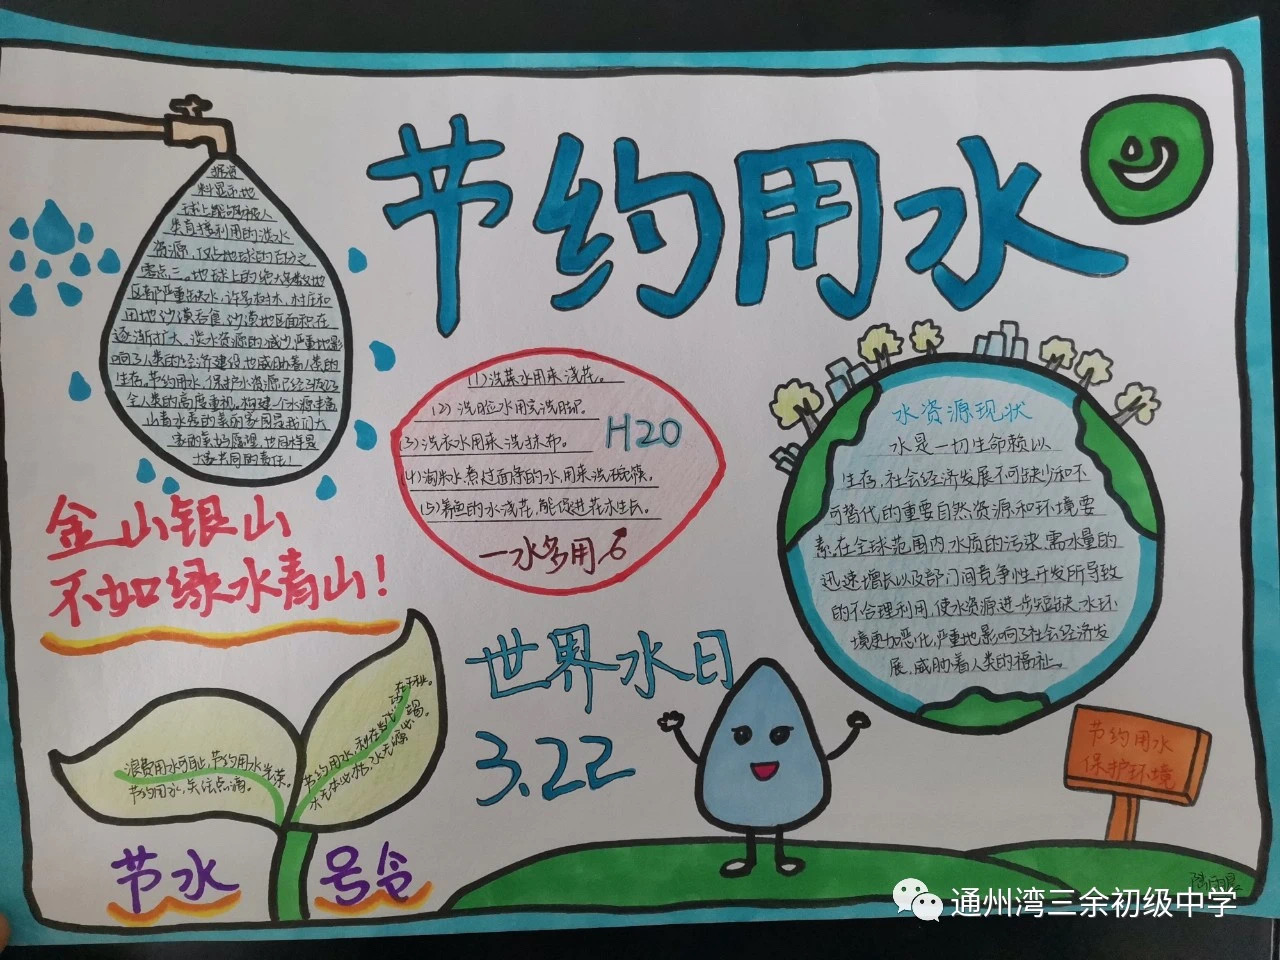 节约用水
据资
料显示,地
球上能够被人
类直接利用的淡水
资源,仅占地球的百分之
零点三。地球上的绝大多数地
区都严重缺水,许多树木、村庄和
田地沙漠吞食,沙漠地区面积在
逐渐扩大,淡水资源的减少,严重地影
响了人类的经济建设也威胁着人类的
生存,节约用水,保护水资源已经引起
全人类的高度重视。构建一个水源丰富
山青水秀的美的家园是我们大
家的美好愿望,也同样是
大家共同的责任!
(1)洗菜水用来浇花。
(2)洗脸水用完洗脚。
(3)洗衣水用来洗抹布。
(4)淘米水,煮过面条的水,用来洗碗筷。
(5)养鱼的水浇花,能促进花木生长。
H2O
一水多用
水资源现状
水是一切生命赖以
生存,社会经济发展不可缺少和不
可替代的重要自然资源和环境要
素,在全球范围内,水质的污染、需水量的
迅速增长以及部门间竞争性开发所导致
的不合理利用,使水资源进一步短缺,水环
境更加恶化,严重地影响了社会经济发
展,威胁着人类的福祉。
金山银山
不如绿水青山!
世界水日
3.22
浪费用水可耻,节约用水光荣。
节约用水,从点滴。
节约用水,利在当代
木无本必枯,水无源必竭。
节水
号令
节约用水
保护环境
通州湾三余初级中学